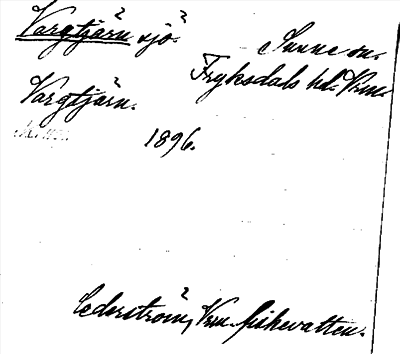 Vargtjärn sjö
Sunne sn.
Fryksdals hd. Vrm.
Vargtjärn.
1896.
Cederström, Vrm. fiskevatten.